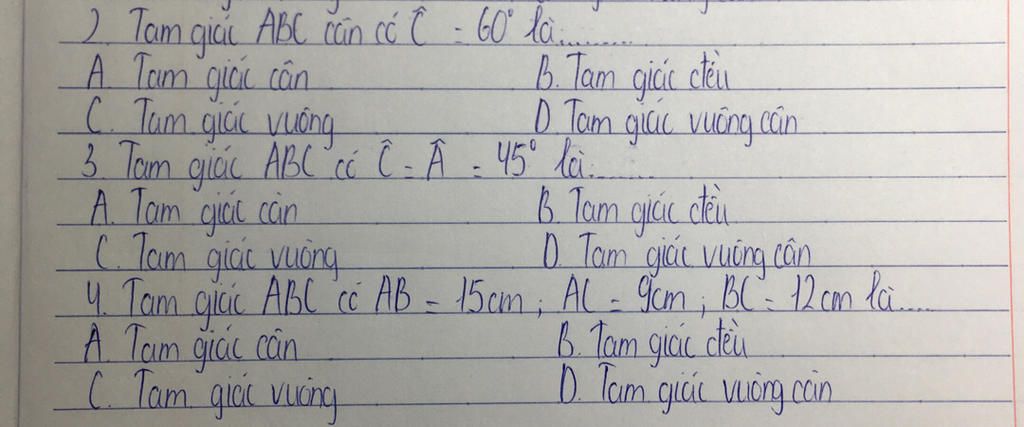 2) Tam giác ABC cân có Ĉ = 60° là..........
A. Tam giác cân B. Tam giác đều
C. Tam giác vuông D. Tam giác vuông cân
3. Tam giác ABC có Ĉ = Â = 45° là.........
A. Tam giác cân B. Tam giác đều
C. Tam giác vuông D. Tam giác vuông cân
4. Tam giác ABC có AB = 15cm ; AC = 9cm ; BC = 12cm là.....
A. Tam giác cân B. Tam giác đều
C. Tam giác vuông D. Tam giác vuông cân